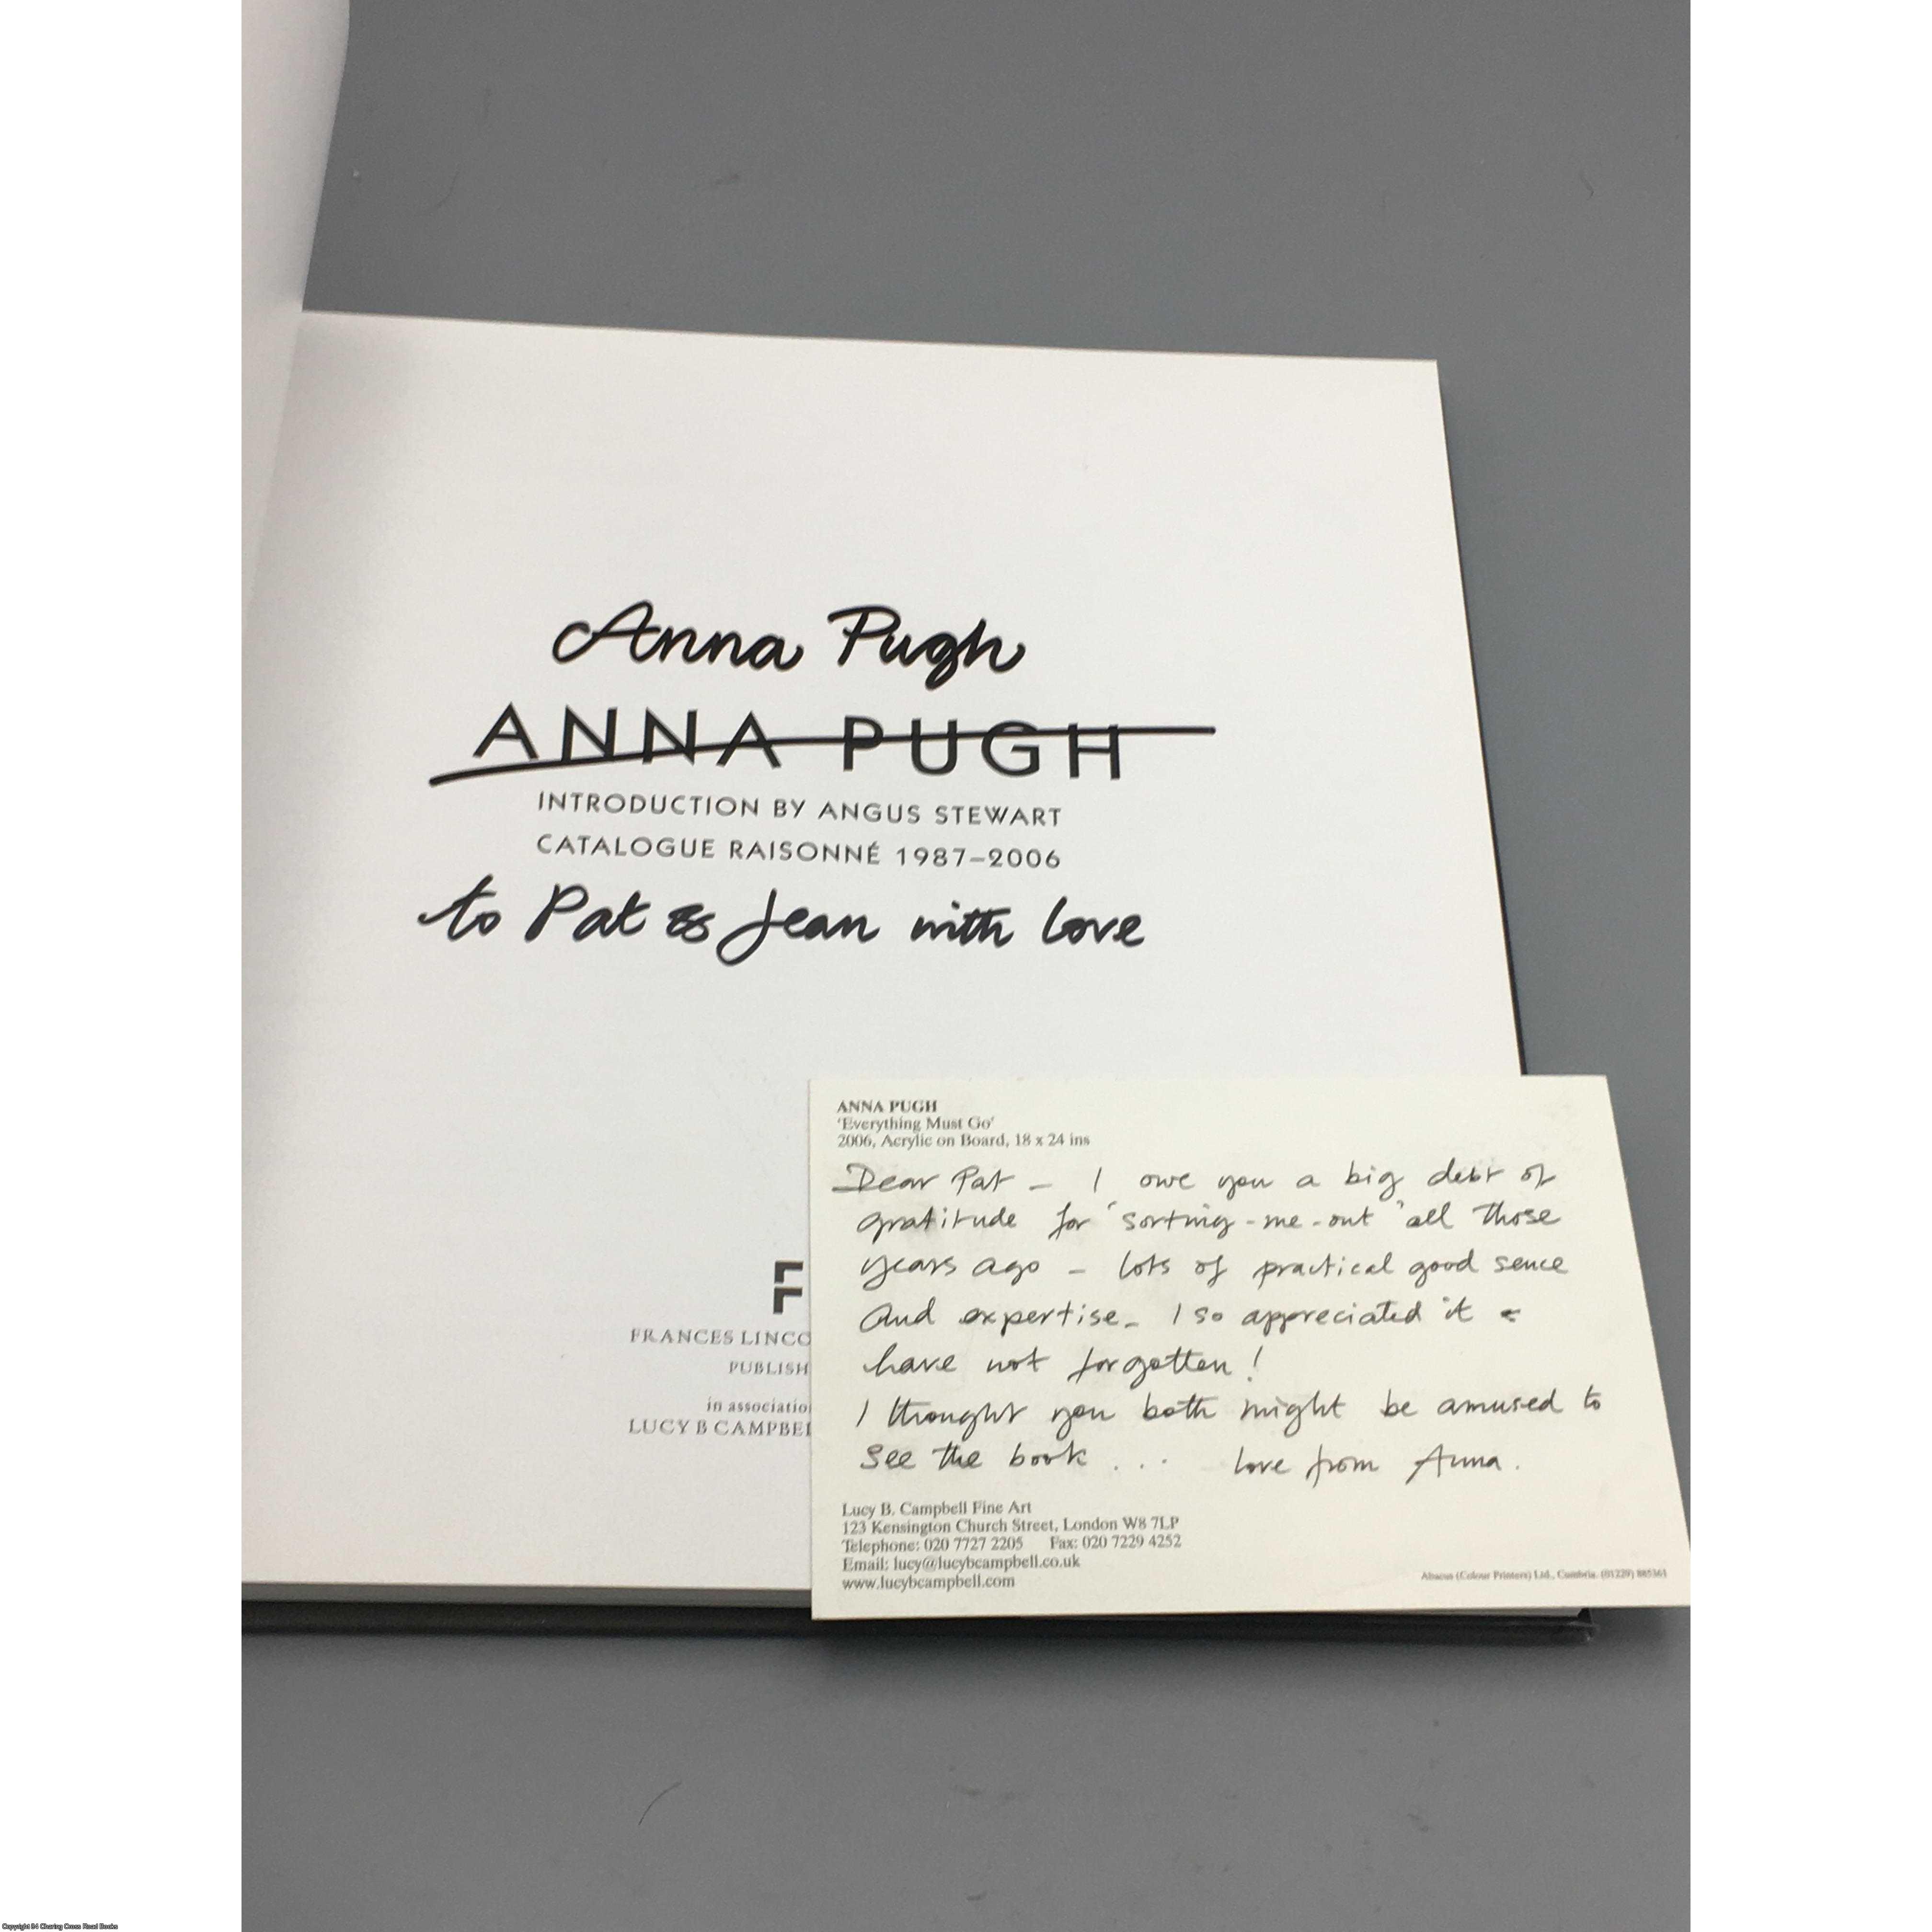 Anna Pugh
ANNA PUGH
INTRODUCTION BY ANGUS STEWART
CATALOGUE RAISONNÉ 1987–2006
to Pat & Jean with love
F
FRANCES LINCO
PUBLISH
in associatio
LUCY B CAMPBEL
ANNA PUGH
'Everything Must Go'
2006, Acrylic on Board, 18 x 24 ins
Dear Pat – I owe you a big debt of
gratitude for 'sorting-me-out' all those
years ago – lots of practical good sence
and expertise – I so appreciated it &
have not forgotten!
I thought you both might be amused to
see the book ... love from Anna.
Lucy B. Campbell Fine Art
123 Kensington Church Street, London W8 7LP
Telephone: 020 7727 2205 Fax: 020 7229 4252
Email: lucy@lucybcampbell.co.uk
www.lucybcampbell.com
Abacus (Colour Printers) Ltd., Cumbria. (01229) 885361
Copyright 84 Charing Cross Road Books